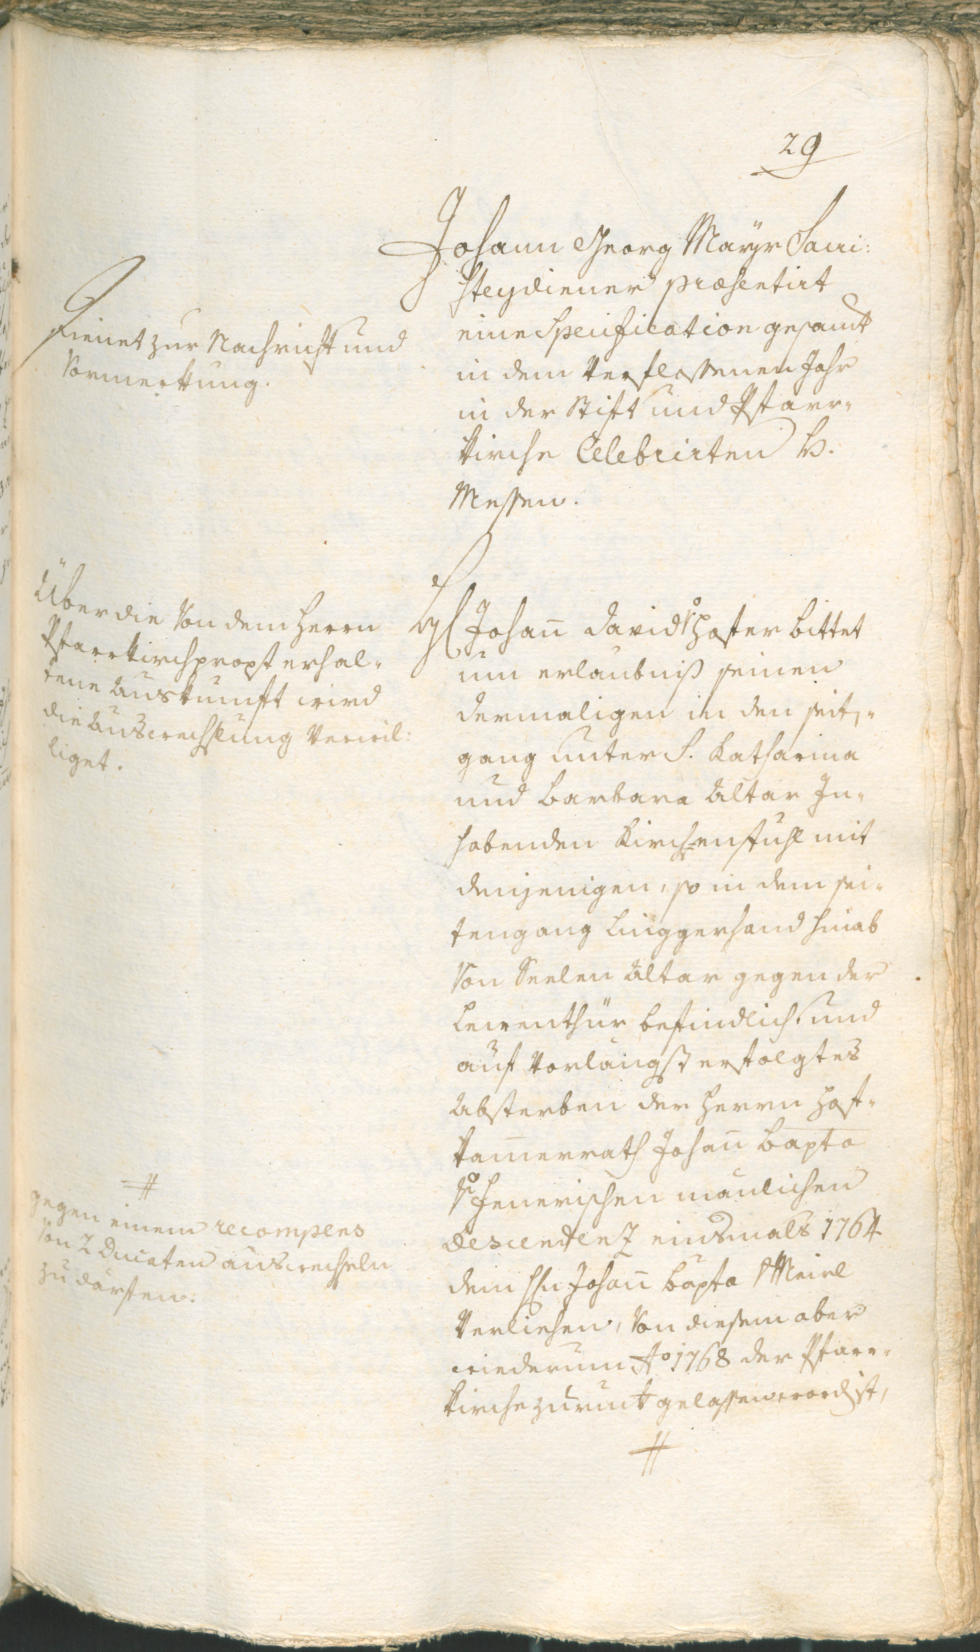 29
Johann Georg Maÿr Sacri:
steydiener præsentirt
eine Specification gesamt
in dem verflossenen Jahr
in der Stift und Pfarr-
kirche Celebrirten H.
Messen.
Dienet zur Nachricht und
Vormerkung.
Johann David Hofer bittet
um erlaubniß seinen
dermaligen in den seit-
gang unter S. Katharina
und Barbara Altar In-
habenden Kirchenstuhl mit
denjenigen, so in dem sei-
tengang linggerhand hinab
von Seelen Altar gegen der
befindlich und
auf vorlängst erfolgtes
Absterben der Herrn Hof-
kammerrath Johann Bapta
männlichen
Descendenz einsmals 1764
dem Hn Johann Bapta
verliehen, von diesem aber
wiederum Ao 1768 der Pfarr-
kirche zurückgelassen word ist,
#
Über die von dem Herrn
Pfarrkirchpropst erhal-
tene Auskunft wird
die Auswechslung verwil:
liget.
#
gegen einem recompens
von 2 Ducaten auswechseln
zu därfen.